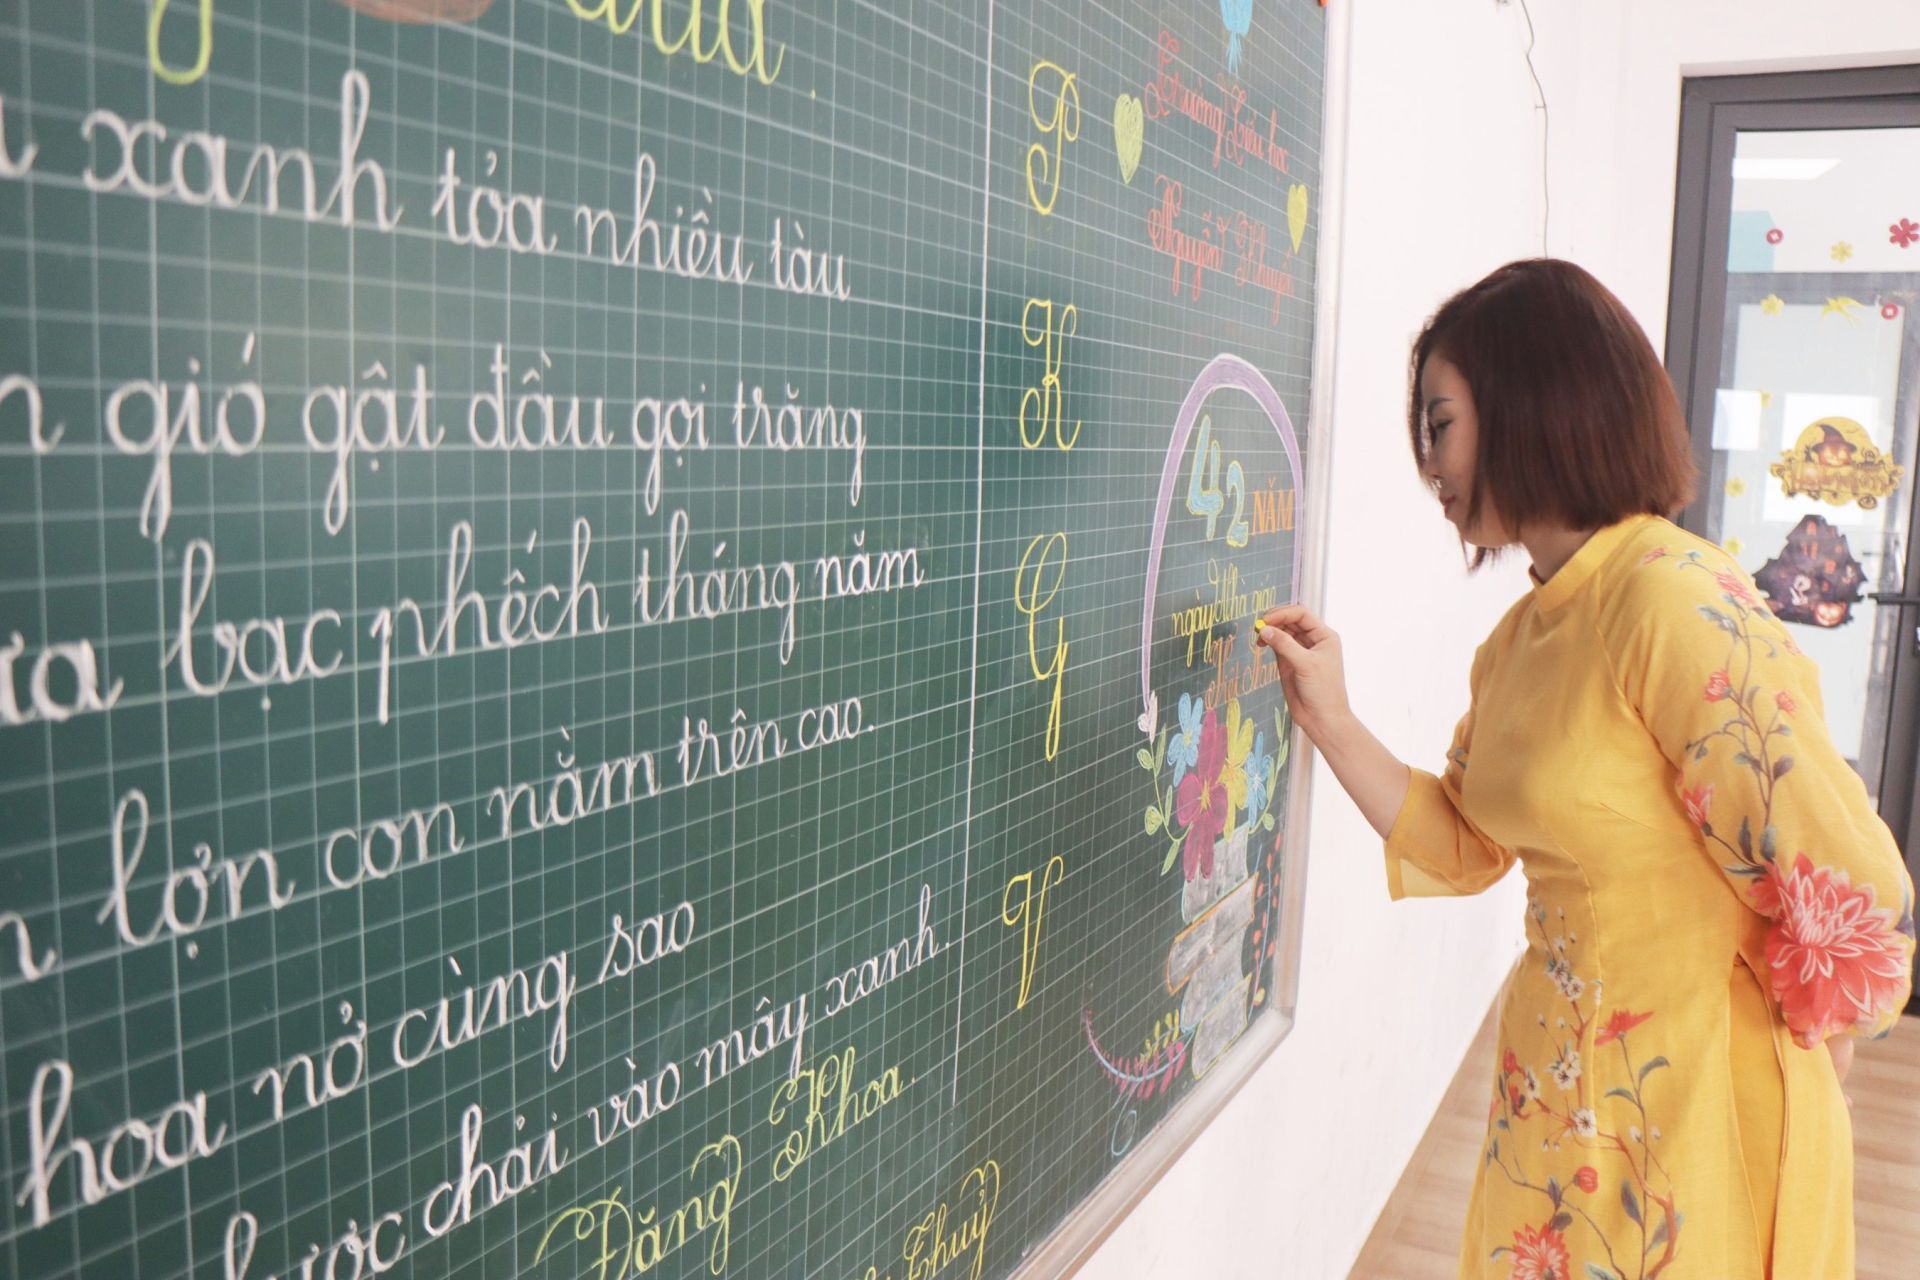 xanh tỏa nhiều tàu
gió gật đầu gọi trăng
bạc phếch tháng năm
lợn con nằm trên cao.
hoa nở cùng sao
chải vào mây xanh.
Đăng Khoa.
Thuỷ
P
K
G
V
Trường Tiểu học
Nguyễn Khuyến
42 NĂM
ngày Nhà giáo
Việt Nam